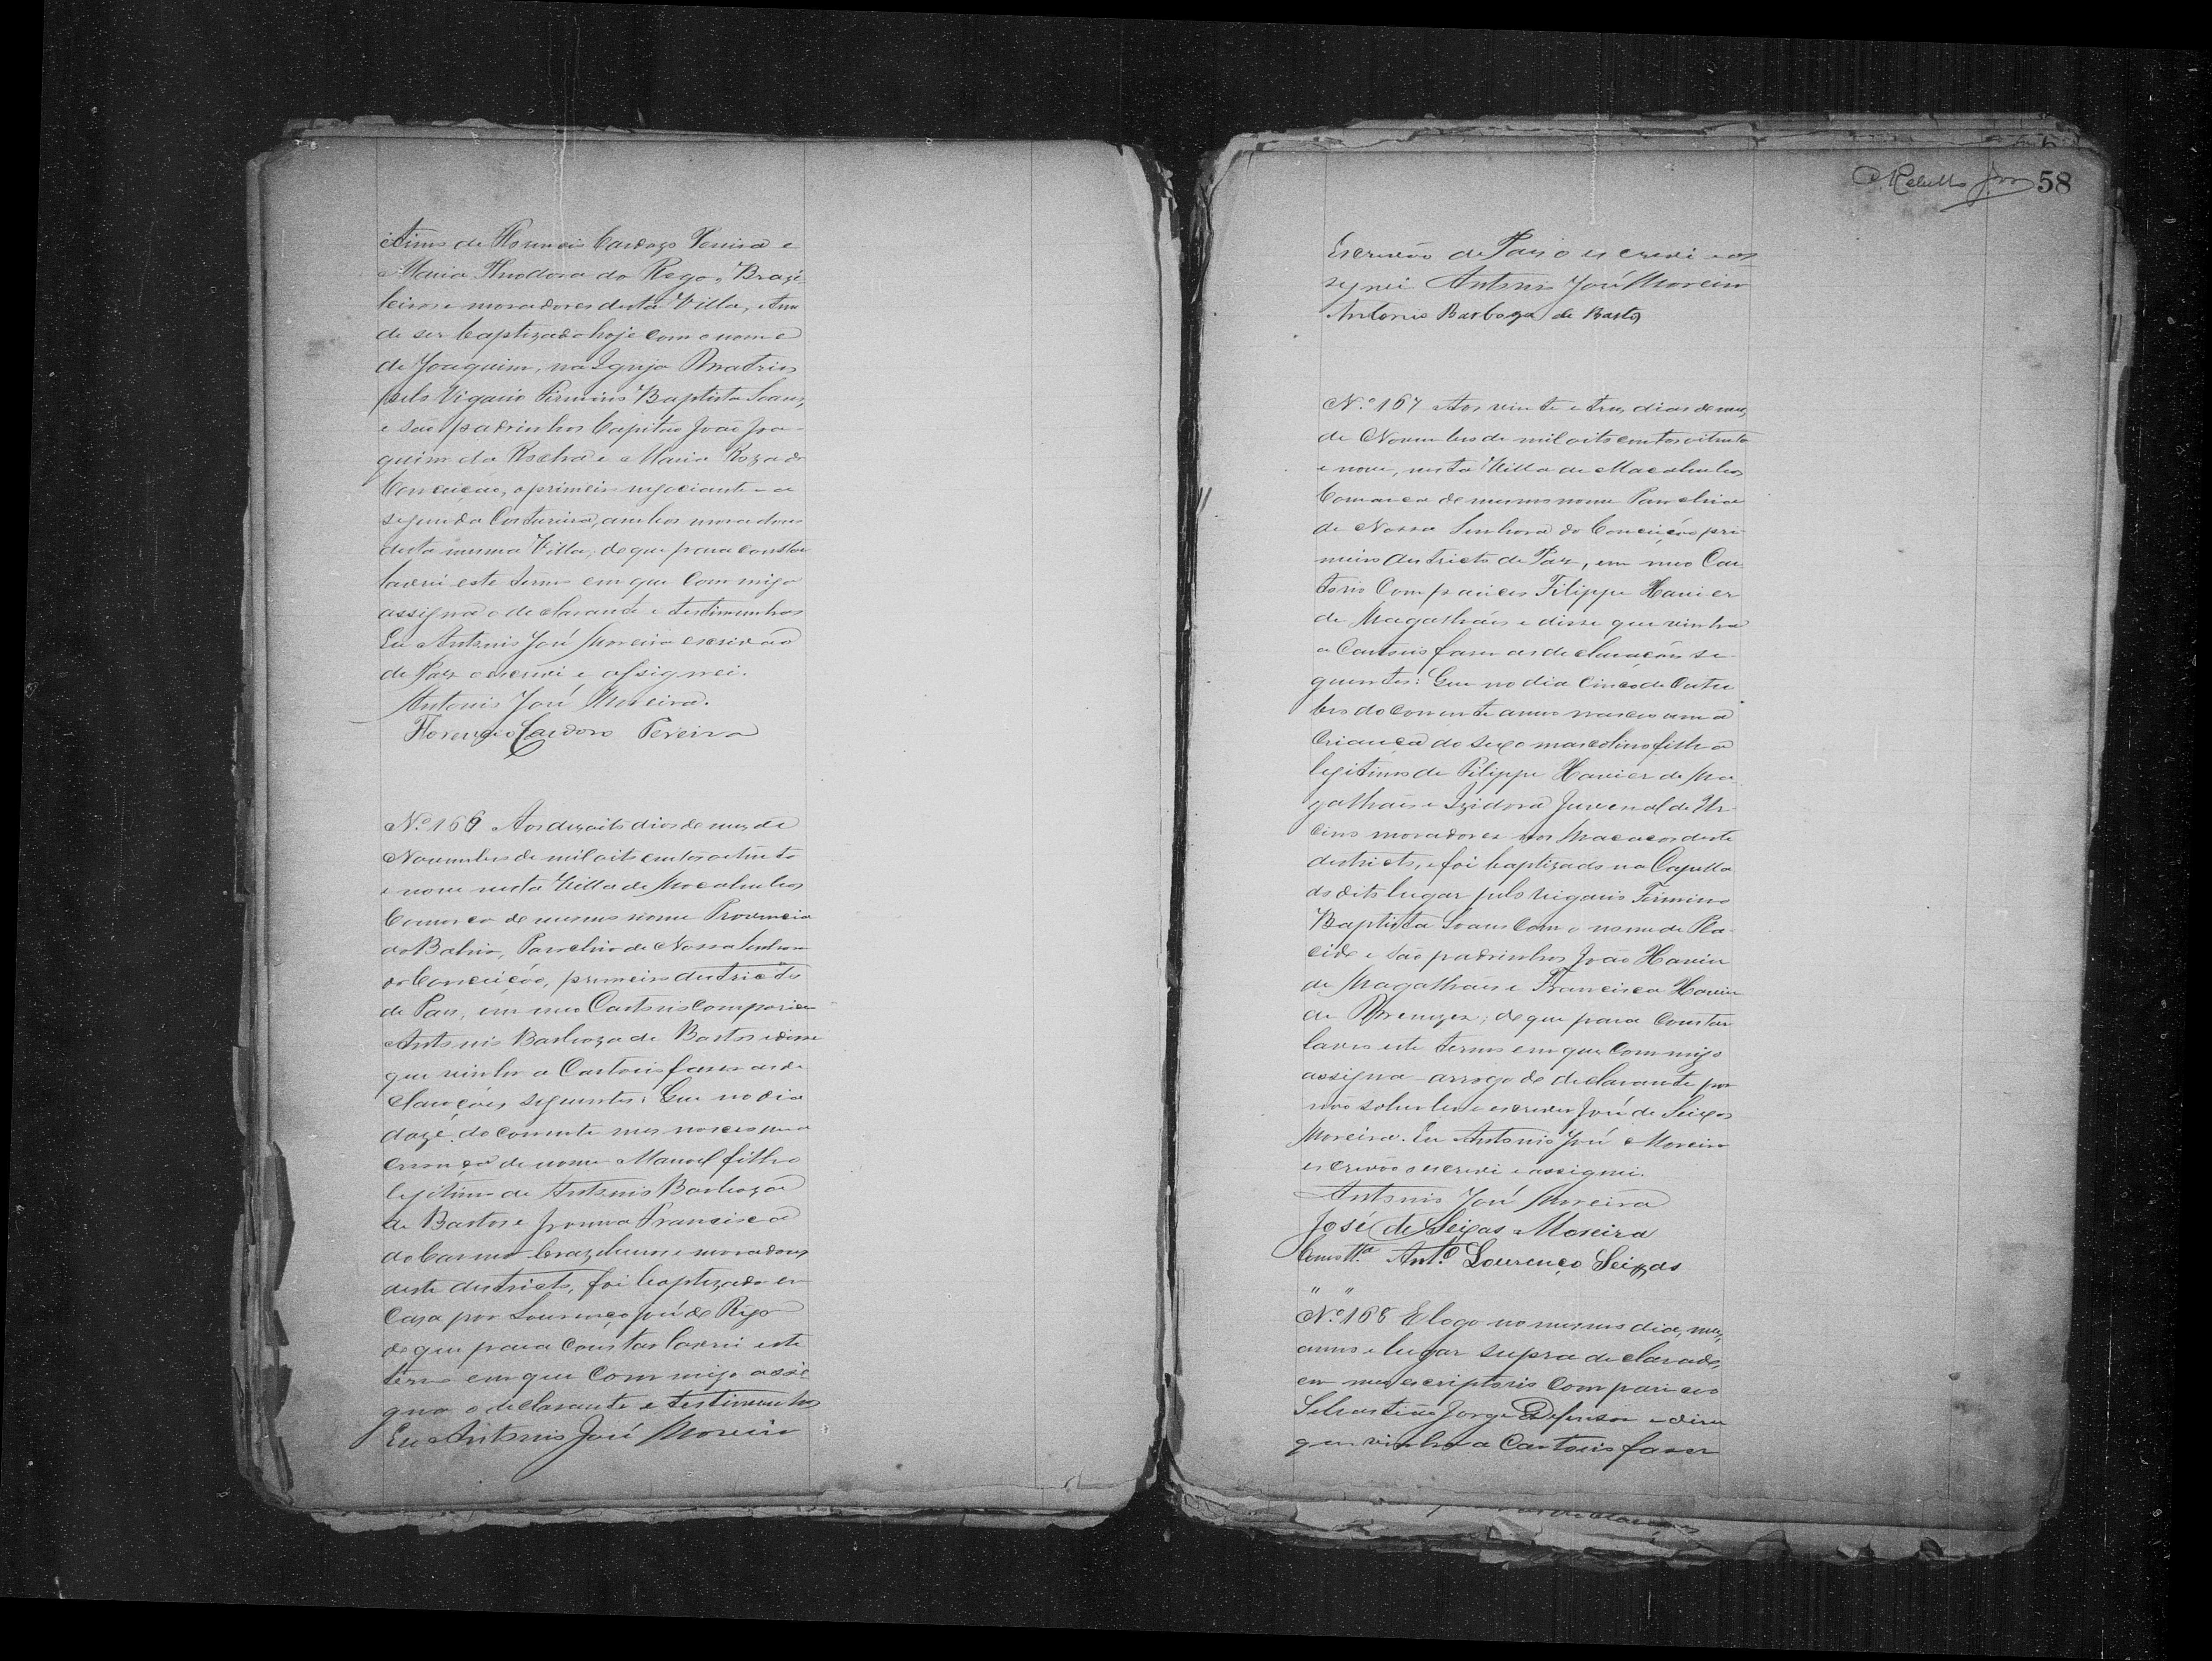 itimo de Florencio Cardozo Pereira e
Maria Theodora do Rego, Brazi-
leiros e moradores desta Villa, e tem
de ser baptizado hoje com o nome
de Joaquim, na Igreja Matris
pelo Vigario Firmino Baptista Soares,
e são padrinhos Capitão João Joa-
quim da Rocha e Maria Roza da
Conceição, o primeiro negociante e a
segunda Costureira, ambos moradores
desta mesma Villa; de que para constar
lavrei este termo em que commigo
assigna o declarante e testimunhas
Eu Antonio José Moreira escrivão
de Paz o escrevi e assignei.
Antonio José Moreira.
Florencio Cardoso Pereira
Nº 166 Aos dezoito dias do mez de
Novembro de mil oito centos oitenta
e nove nesta Villa de Macahubas
Comarca do mesmo nome Provincia
da Bahia, Parochia de Nossa Senhora
da Conceição, primeiro districto
de Paz, em meo Cartorio compareceo
Antonio Barboza de Bastos e disse
que vinha a Cartorio fazer as de-
clarações seguintes: Que no dia
doze do corrente mes nasceo uma
criança de nome Manoel filho
legitimo de Antonio Barboza
de Bastos e Francisca
do Carmo brazileiros e moradores
deste districto, foi baptizado em
Casa por Lourenço José do Rego
de que para constar lavrei este
termo em que commigo assi-
gna o declarante e testimunhas
Eu Antonio José Moreira
58
Escrivão de Paz o escrevi e as
signei Antonio José Moreira
Antonio Barboza de Bastos
Nº 167 Aos vinte e tres dias do mez
de Novembro de mil oito centos oitenta
e nove, nesta Villa de Macahubas
Comarca do mesmo nome Parochia
de Nossa Senhora da Conceição pri
meiro districto de Paz, em meo Car
torio Compareceo Filippe Xavier
de Magalhães e disse que vinha
a Cartorio fazer as declarações se
guintes: Que no dia Cinco de Outu
bro do corrente anno nasceo uma
Criança do sexo mascolino filho
legitimo de Filippe Xavier de Ma
galhães e Izidora Juvenal de Ur
moradores nos Macacos deste
destricto, e foi baptizado na Capella
do dito lugar pelo vigario Firmino
Baptista Soares com o nome de Pla-
cido e são padrinhos João Xavier
de Magalhães e Francisca Xavier
de Menezes; de que para constar
lavro este termo em que commigo
assigna arrogo do declarante por
não saber ler e escrever José de Seixas
Moreira. Eu Antonio José Moreira
escrivão o escrevi e assignei.
Antonio José Moreira
José de Seixas Moreira
Como tt.ª Ant.º Lourenço Seixas
" "
Nº 168 E logo no mesmo dia, mez,
anno e lugar supra declarado,
em meo escriptorio compareceo
Sebastião Jorge Defensor e disse
que vinha a Cartorio fazer